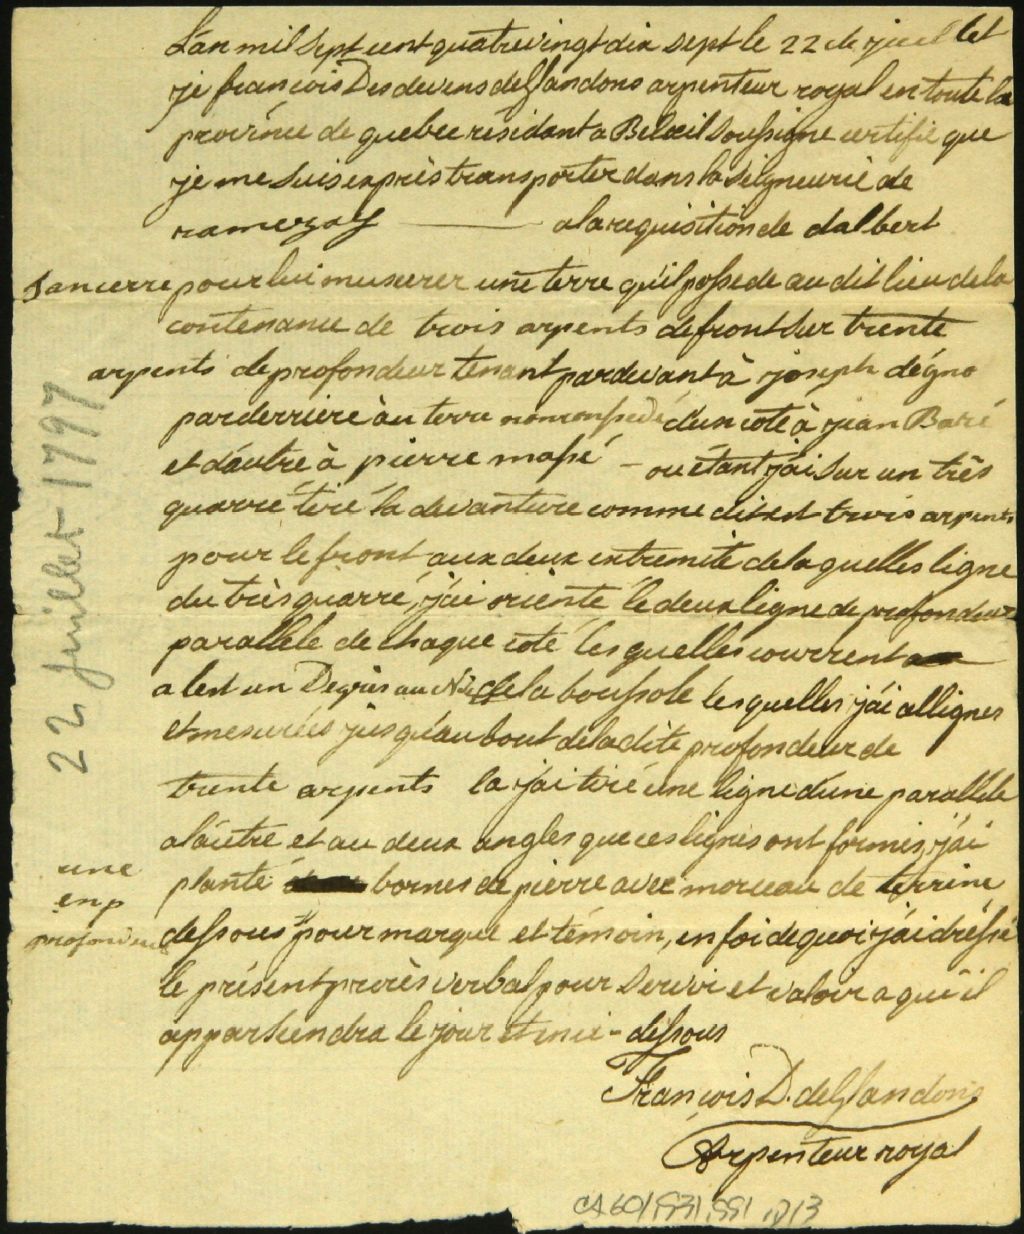 L'an mil sept cent quatre vingt dix sept le 22 de juillet
je françois Des devens deGlandons arpenteur royal en toute la
province de quebec résidant a Belœil soussigne certifie que
je me suis exprès transporter dans la seigneurie de
ramezay ——— a la requisition de dalbert
sancerre pour lui musurer une terre qu'il possede au dit lieu de la
contenance de trois arpents de front sur trente
arpents de profondeur tenant pardevant à joseph dégno
par derriere au terre non consedé d'un coté à jean Baré
et d'autre à pierre massé – ou étant j'ai sur un très
quarré tiré la devanture comme dit est trois arpents
pour le front aux deux extremité de laquelles ligne
du très quarré, j'ai oriénté le deux ligne de profondeur
parallele de chaque coté lesquelles courrent
a lest un Degrès au de la boussole lesquelles j'ai allignes
et mesurées jusqu'au bout de la dite profondeur de
trente arpents la j'ai tiré une ligne d'une parallele
a l'autre et au deux angles que ces lignes ont formés, j'ai
une
planté bornes de pierre avec morceau de terrine
en p
profondeur
dessous pour marque et témoin, en foi de quoi j'ai dréssé
le présent procès verbal pour servir et valoir a qui il
appartiendra le jour et an ci-dessous
François D. deGlandons
Arpenteur royal
22 Juillet 1797
CA 601,S31,SS1,D13